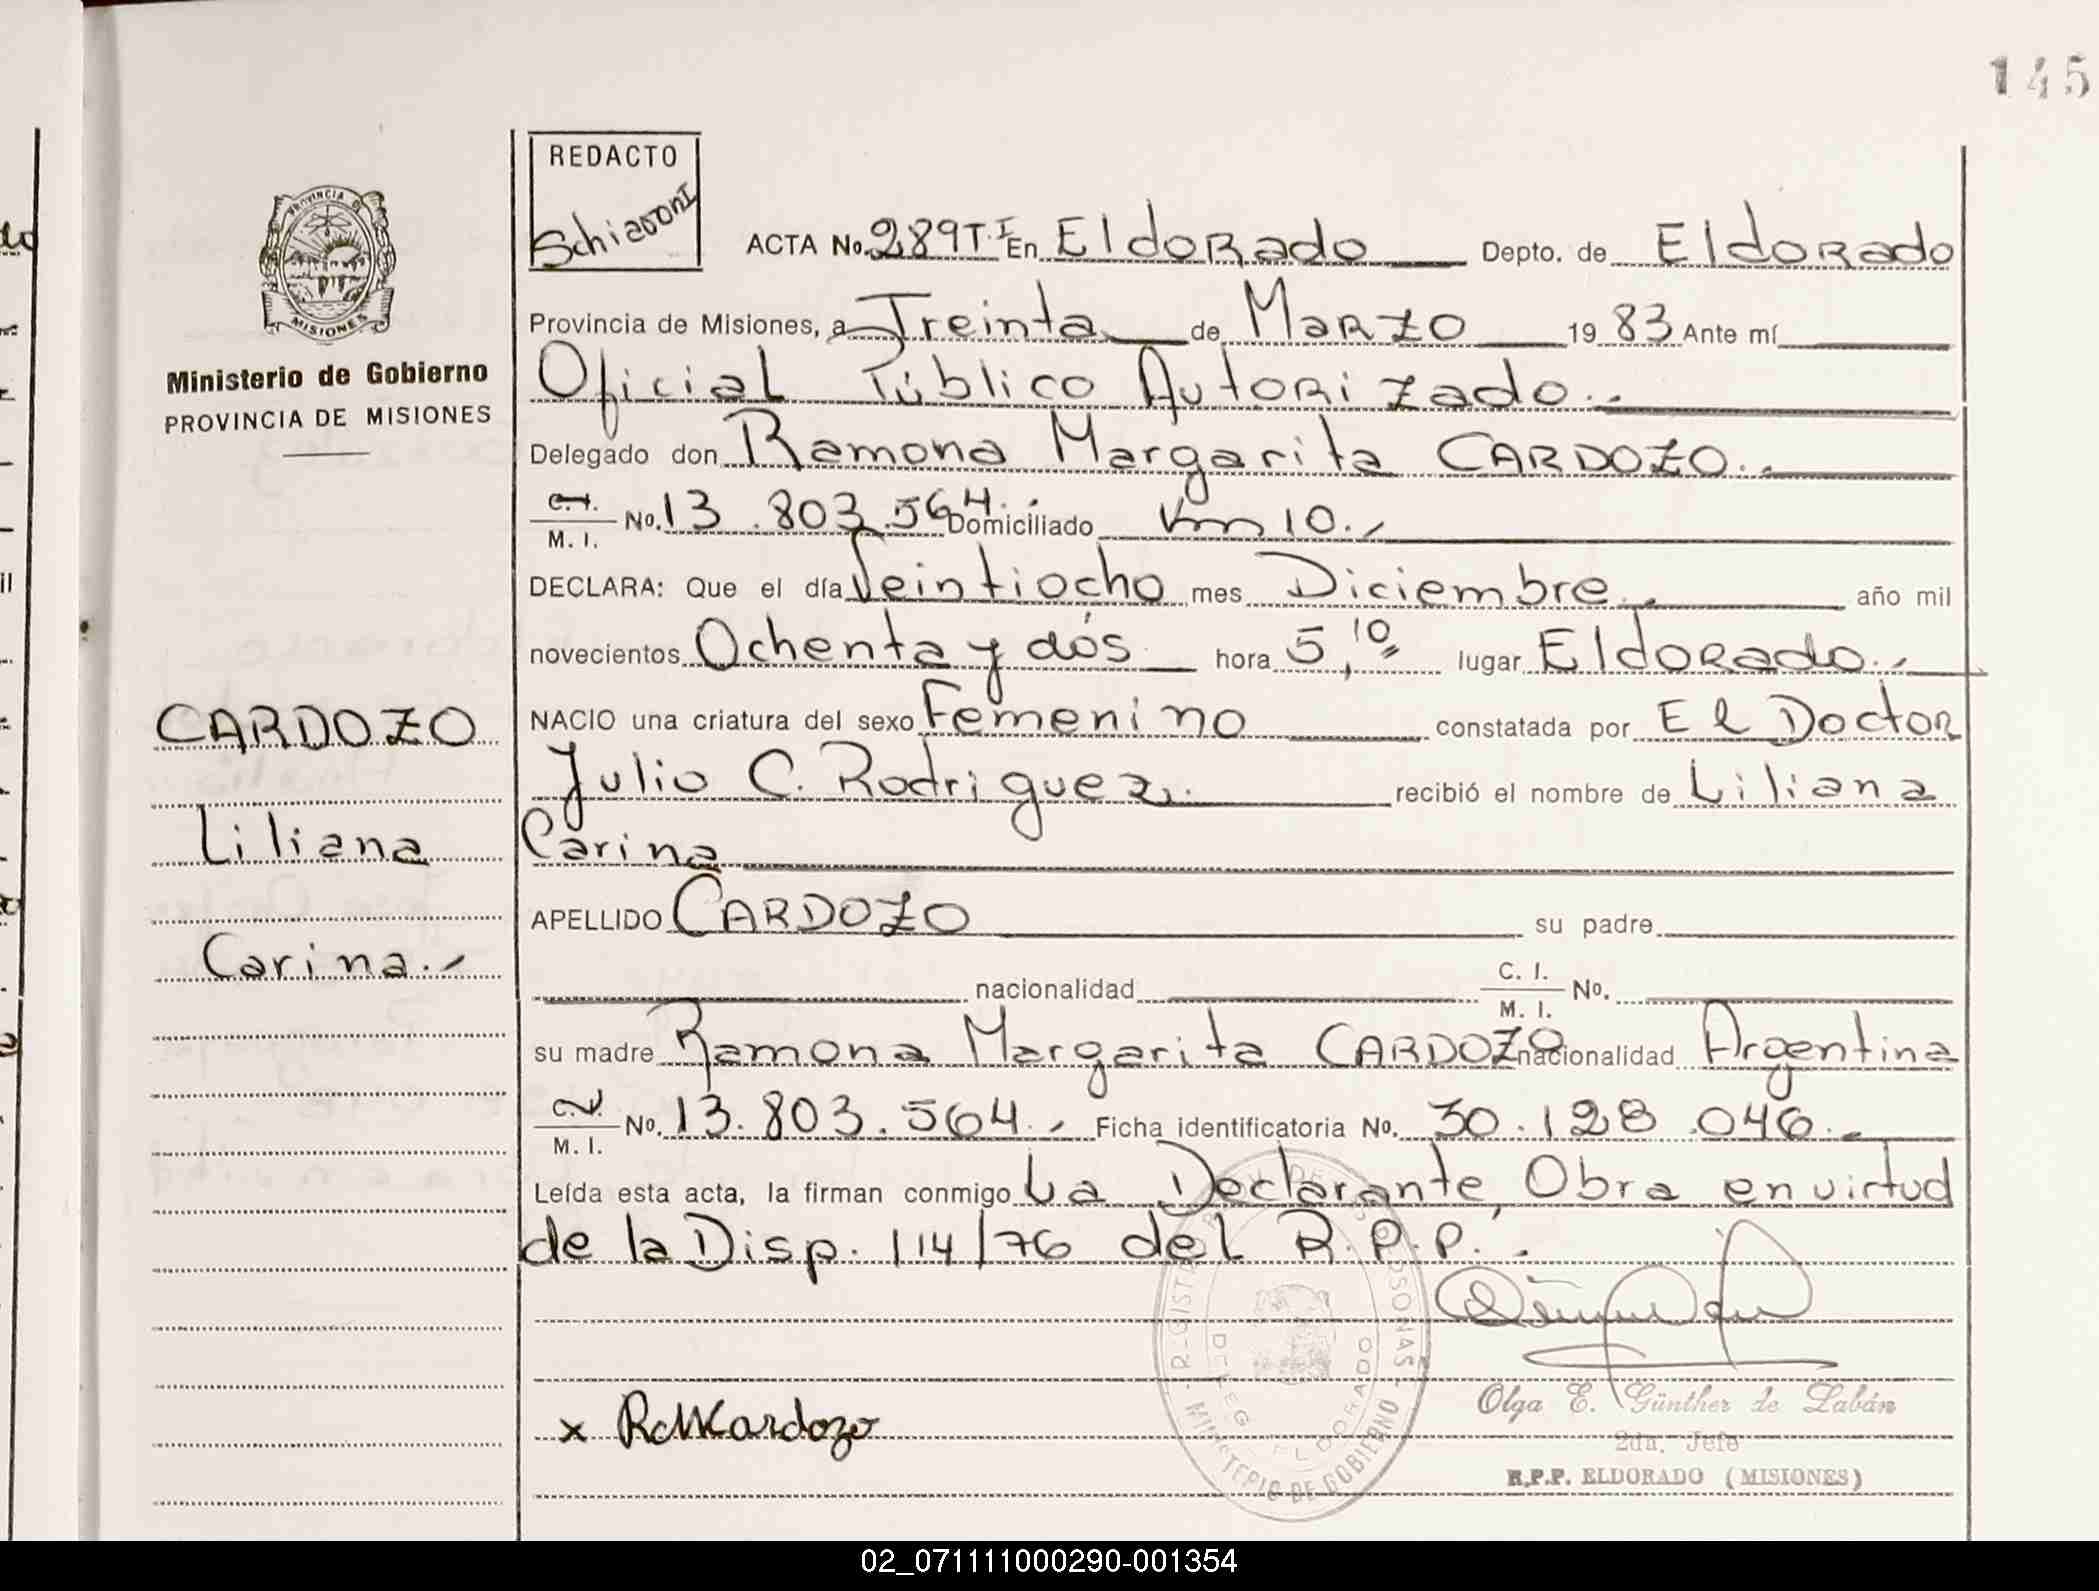 145
REDACTO
Schiavoni
ACTA No. 289 T. I En Eldorado Depto. de Eldorado
PROVINCIA DE
MISIONES
Provincia de Misiones, a Treinta de Marzo 19 83 Ante mí
Ministerio de Gobierno
PROVINCIA DE MISIONES
Oficial Público Autorizado.-
Delegado don Ramona Margarita CARDOZO.-
C. I.
M. I. No. 13.803.564.- Domiciliado Km 10.-
DECLARA: Que el día Veintiocho mes Diciembre.- año mil
novecientos Ochenta y dós hora 5,10 lugar Eldorado.-
CARDOZO
NACIO una criatura del sexo Femenino constatada por El Doctor
Julio C. Rodriguez.- recibió el nombre de Liliana
Liliana
Carina
APELLIDO CARDOZO su padre
Carina.-
nacionalidad C. I. No.
M. I.
su madre Ramona Margarita CARDOZO nacionalidad Argentina
C. I.
M. I. No. 13.803.564.- Ficha identificatoria No. 30.128.046.-
Leída esta acta, la firman conmigo La Declarante Obra en virtud
de la Disp. 114/76 del R.P.P.-
REGISTRO DE PERSONAS
MINISTERIO DE GOBIERNO
DELEG. ELDORADO
x RdMCardozo
Olga E. Günther de Labán
2da. Jefe
R.P.P. ELDORADO (MISIONES)
02_071111000290-001354